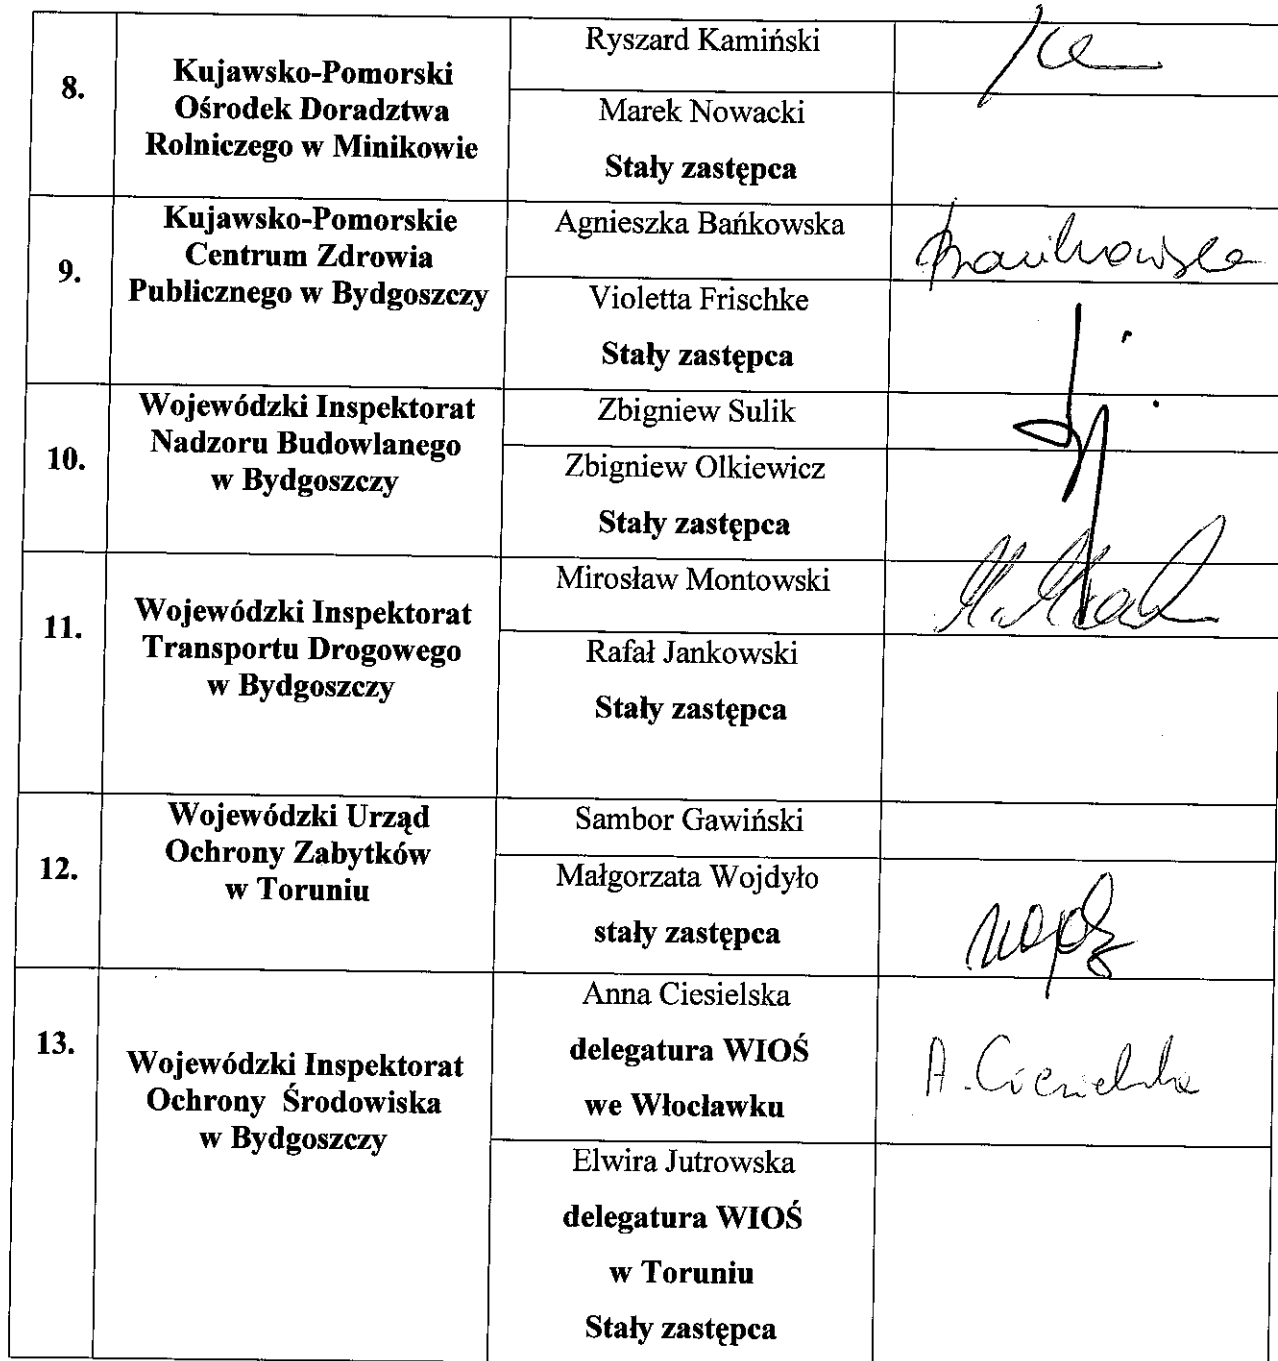 8.
Kujawsko-Pomorski
Ośrodek Doradztwa
Rolniczego w Minikowie
Ryszard Kamiński
Marek Nowacki
Stały zastępca
9.
Kujawsko-Pomorskie
Centrum Zdrowia
Publicznego w Bydgoszczy
Agnieszka Bańkowska
Violetta Frischke
Stały zastępca
10.
Wojewódzki Inspektorat
Nadzoru Budowlanego
w Bydgoszczy
Zbigniew Sulik
Zbigniew Olkiewicz
Stały zastępca
11.
Wojewódzki Inspektorat
Transportu Drogowego
w Bydgoszczy
Mirosław Montowski
Rafał Jankowski
Stały zastępca
12.
Wojewódzki Urząd
Ochrony Zabytków
w Toruniu
Sambor Gawiński
Małgorzata Wojdyło
stały zastępca
13.
Wojewódzki Inspektorat
Ochrony Środowiska
w Bydgoszczy
Anna Ciesielska
delegatura WIOŚ
we Włocławku
A. Ciesielska
Elwira Jutrowska
delegatura WIOŚ
w Toruniu
Stały zastępca